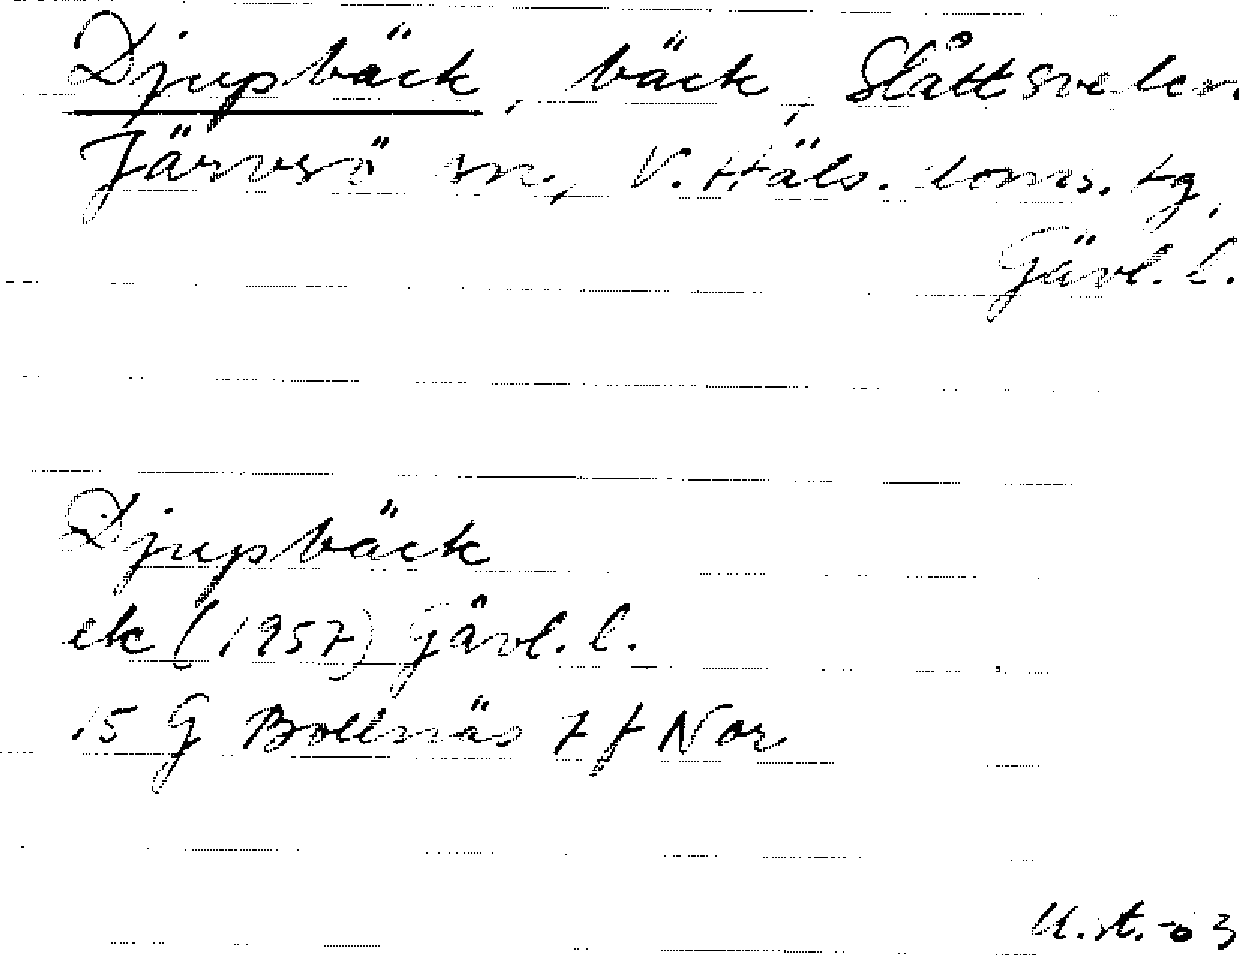 Djupbäck, bäck, Slåttsvelen.
Järvsö sn., V. Häls. doms. tg,
Gävl. l.
Djupbäck
ek (1957) Gävl. l.
15 G Bollnäs 7 f Nor
U.st.-63